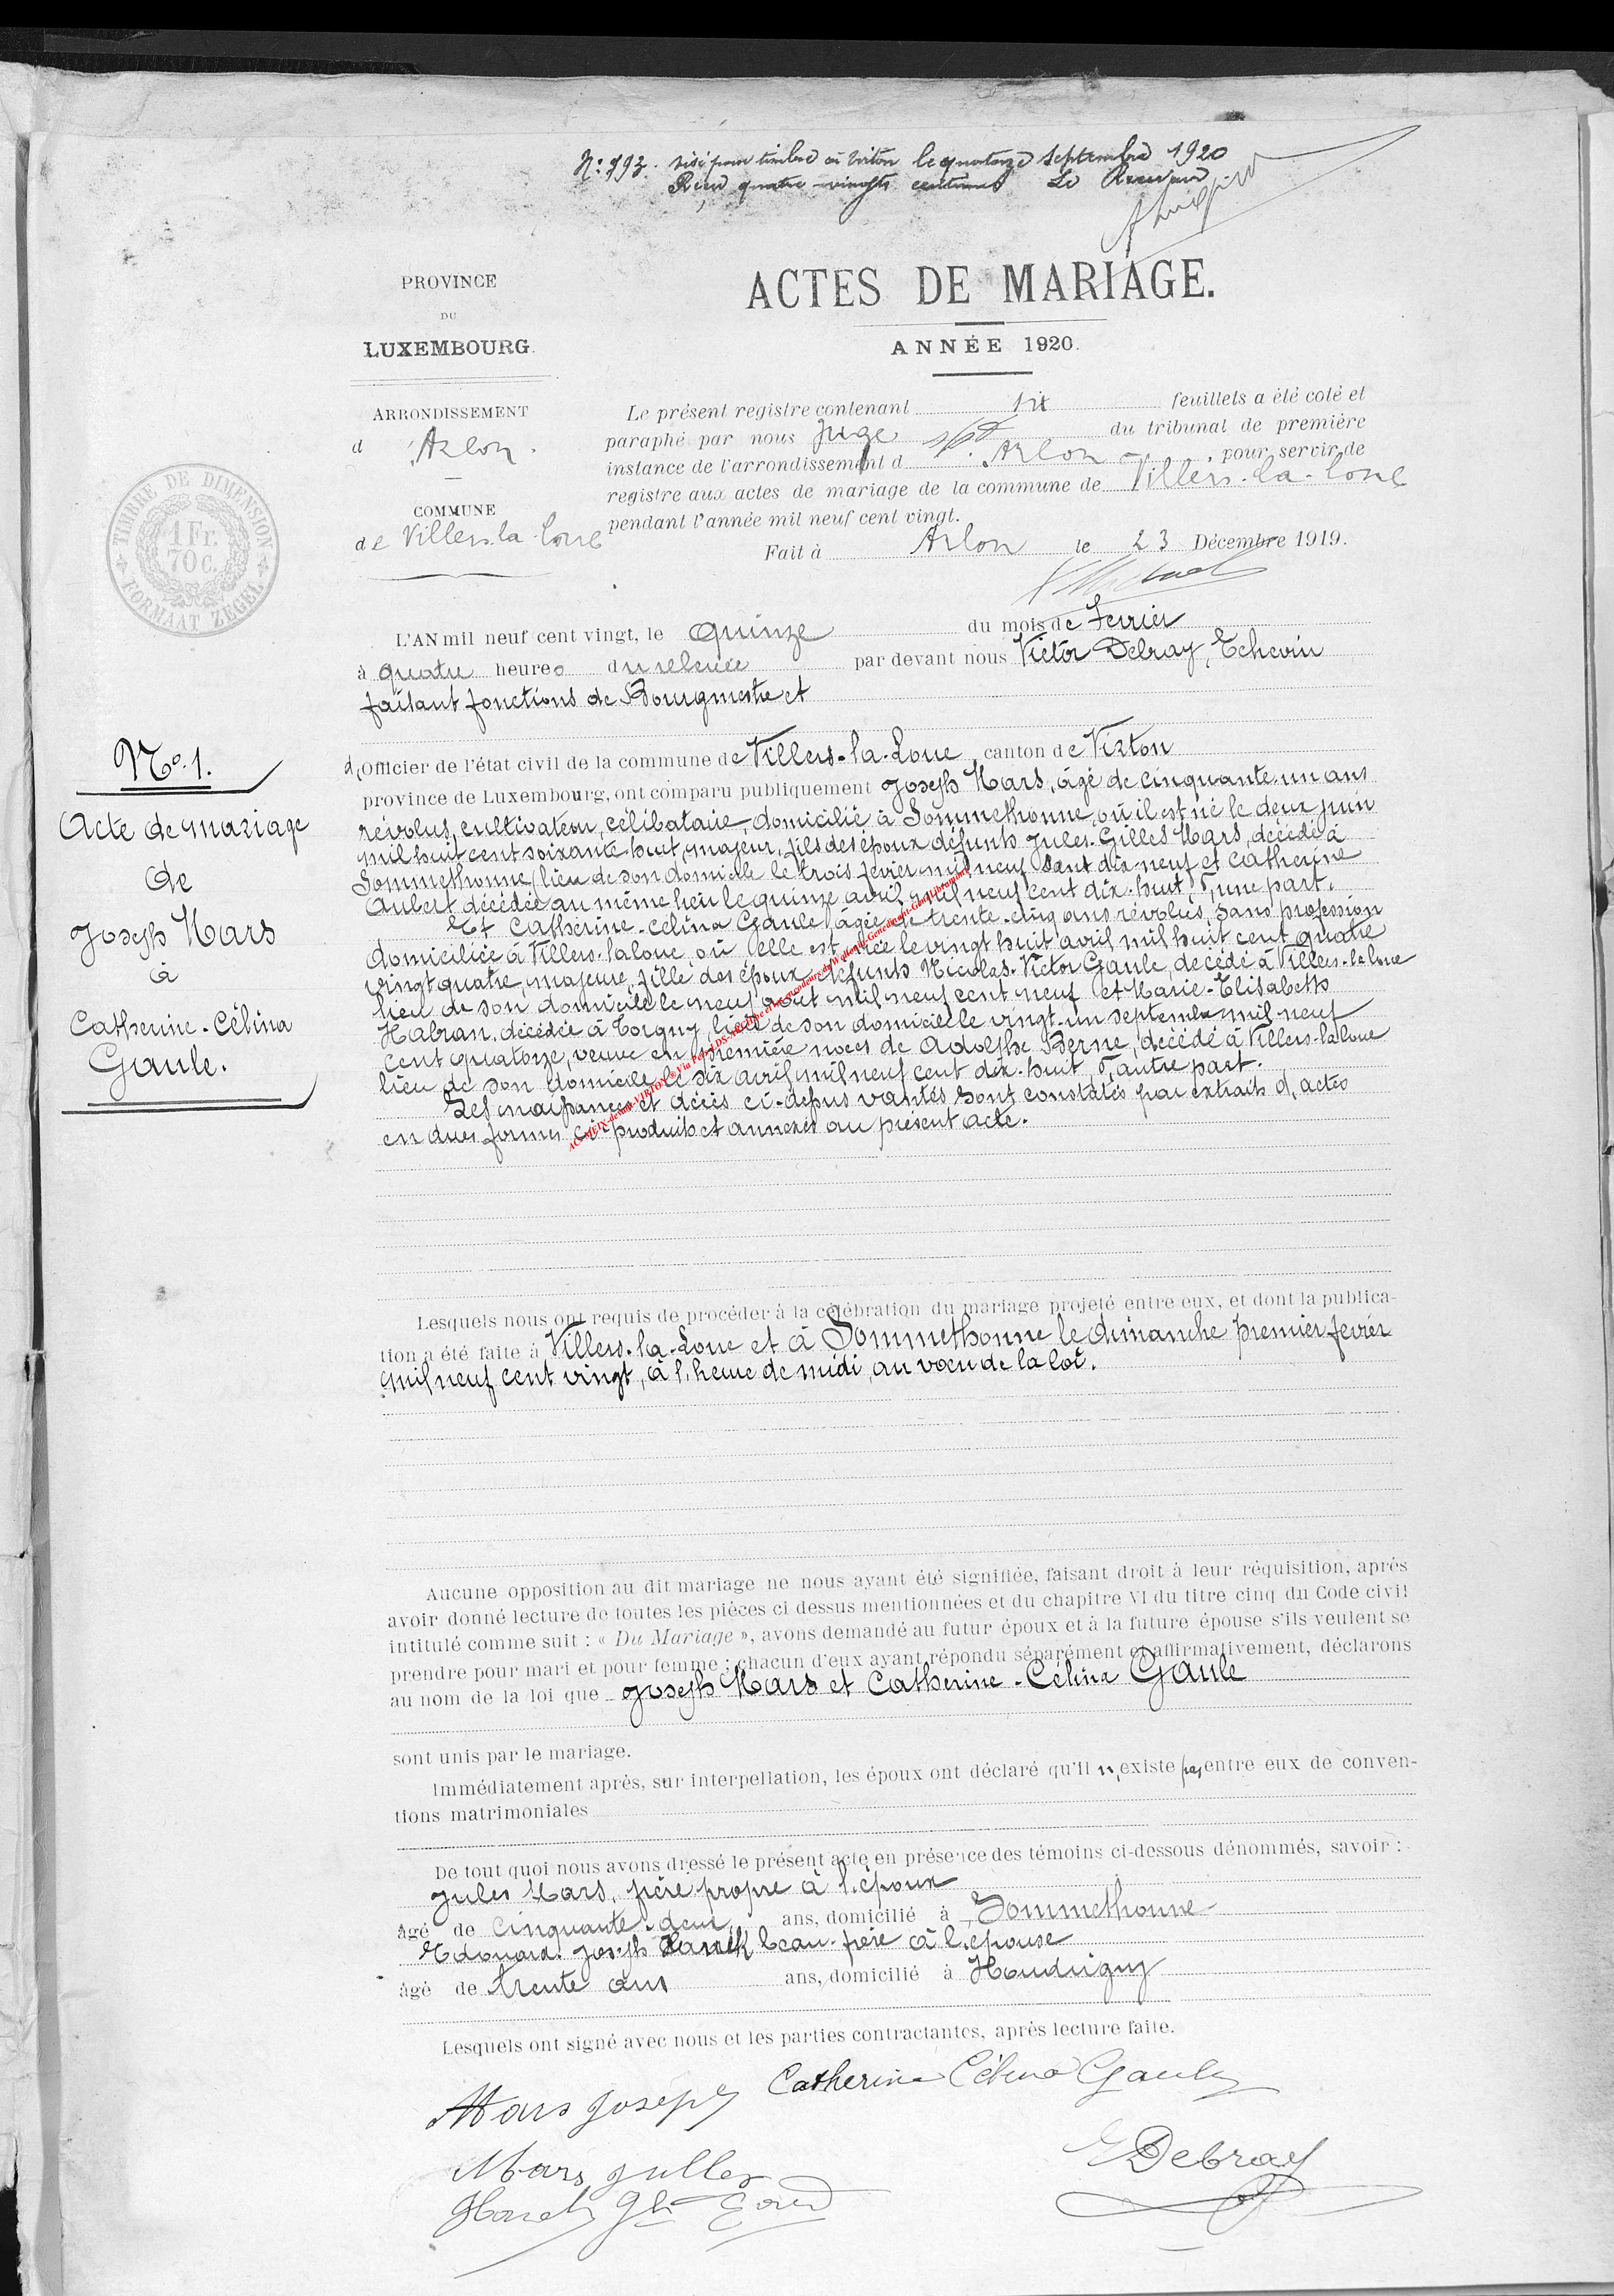 N° 793. visé pour timbre à Virton le quatorze septembre 1920
Reçu quatre-vingts centimes Le Receveur
PROVINCE
DU
LUXEMBOURG.
ARRONDISSEMENT
d'Arlon.
COMMUNE
de Villers-la-Loue
TIMBRE DE DIMENSION
1 Fr.
70 c.
FORMAAT ZEGEL
ACTES DE MARIAGE.
ANNÉE 1920.
Le présent registre contenant six feuillets a été coté et
paraphé par nous Juge du tribunal de première
instance de l'arrondissement d Arlon, pour servir de
registre aux actes de mariage de la commune de Villers-la-Loue
pendant l'année mil neuf cent vingt.
Fait à Arlon le 23 Décembre 1919.
N° 1.
Acte de mariage
de
Joseph Mars
à
Catherine-Célina
Gaule.
L'AN mil neuf cent vingt, le quinze du mois de Fevrier
à quatre heures du relevée par devant nous Victor Debray, Echevin
faisant fonctions de Bourgmestre et
d'Officier de l'état civil de la commune de Villers-la-Loue, canton de Virton
province de Luxembourg, ont comparu publiquement Joseph Mars, âgé de cinquante-un ans
révolus, cultivateur, célibataire, domicilié à Sommethonne, où il est né le deux juin
mil huit cent soixante-huit, majeur, fils des époux défunts Jules-Gilles Mars, décédé à
Sommethonne, lieu de son domicile le trois fevrier mil neuf cent dix neuf et Catherine
Aubert décédée au même lieu le quinze avril mil neuf cent dix-huit, d'une part.
Et Catherine-Célina Gaule, âgée de trente-cinq ans révolus, sans profession
domiciliée à Villers-la loue, où elle est née le vingt huit avril mil huit cent quatre
vingt quatre, majeure, fille des époux défunts Nicolas-Victor Gaule, décédé à Villers-la loue
lieu de son domicile le neuf août mil neuf cent neuf et Marie-Elisabeth
Habran, décédée à Torgny, lieu de son domicile le vingt-un septembre mil neuf
cent quatorze, veuve en première noces de Adolphe Berne, décédé à Villers-la loue
lieu de son domicile le six avril mil neuf cent dix-huit, d'autre part.
Les naissances et décès ci-dessus vantés sont constatés par extraits d'actes
en dues formes ci-produits et annexés au présent acte.
Lesquels nous ont requis de procéder à la célébration du mariage projeté entre eux, et dont la publica-
tion a été faite à Villers-la-Loue et à Sommethonne le dimanche premier fevrier
mil neuf cent vingt, à l'heure de midi, au vœu de la loi.
Aucune opposition au dit mariage ne nous ayant été signifiée, faisant droit à leur réquisition, après
avoir donné lecture de toutes les pièces ci dessus mentionnées et du chapitre VI du titre cinq du Code civil
intitulé comme suit : « Du Mariage », avons demandé au futur époux et à la future épouse s'ils veulent se
prendre pour mari et pour femme ; chacun d'eux ayant répondu séparément et affirmativement, déclarons
au nom de la loi que Joseph Mars et Catherine-Célina Gaule
sont unis par le mariage.
Immédiatement après, sur interpellation, les époux ont déclaré qu'il n'existe pas entre eux de conven-
tions matrimoniales
De tout quoi nous avons dressé le présent acte en présence des témoins ci-dessous dénommés, savoir :
Jules Mars, frère propre à l'époux
âgé de cinquante-deux ans, domicilié à Sommethonne
Edouard Joseph beau-frère à l'épouse
âgé de trente ans ans, domicilié à Houdrigny
Lesquels ont signé avec nous et les parties contractantes, après lecture faite.
Mars Joseph Catherine Célina Gaule
Mars Julles
Debray